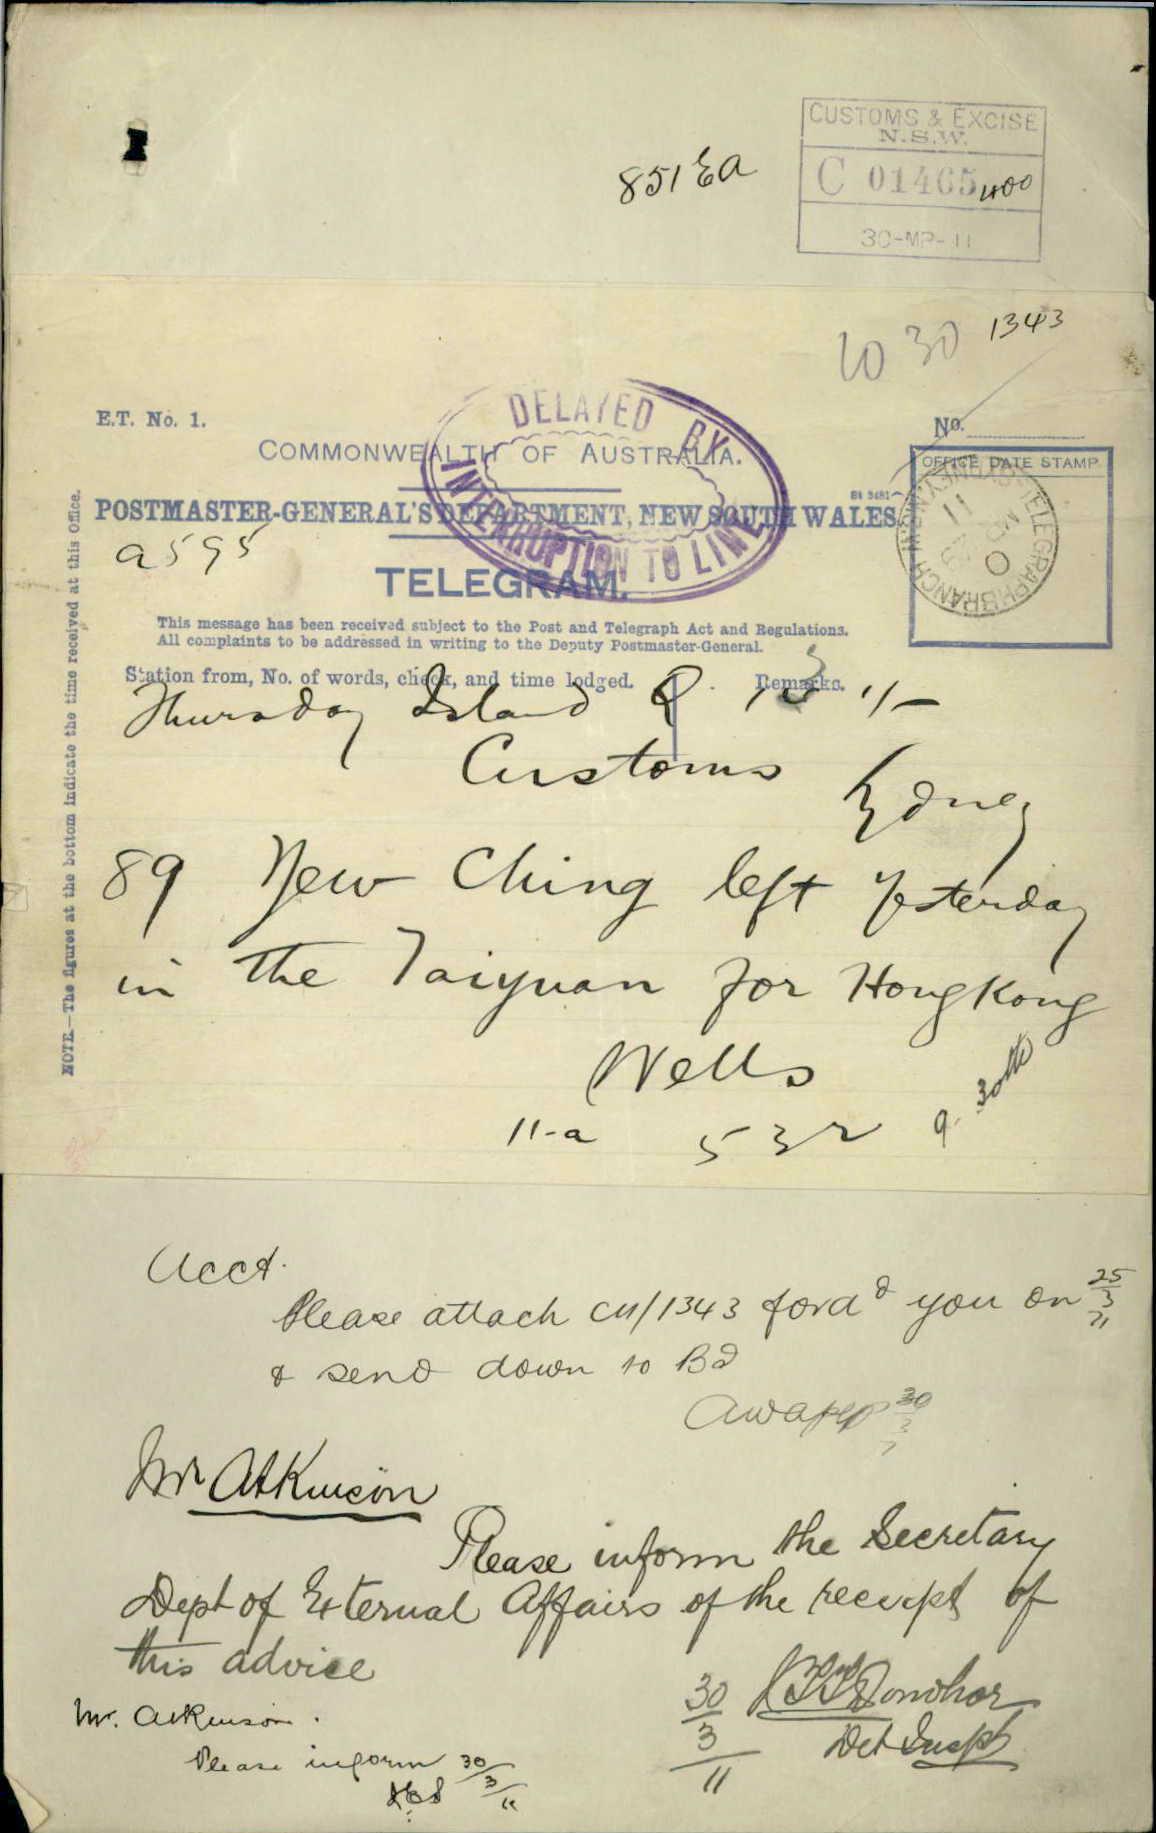 CUSTOMS & EXCISE
N.S.W.
C 01465
400
30-MR-11
851 Ea
10 30 1343
E.T. No. 1.
No.
DELAYED BY
INTERRUPTION TO LINE
COMMONWEALTH OF AUSTRALIA.
OFFICE DATE STAMP.
POSTMASTER-GENERAL'S DEPARTMENT, NEW SOUTH WALES.
TELEGRAPH BRANCH
a 595
TELEGRAM.
This message has been received subject to the Post and Telegraph Act and Regulations.
All complaints to be addressed in writing to the Deputy Postmaster-General.
Station from, No. of words, check, and time lodged. Remarks.
NOTE.—The figures at the bottom indicate the time received at this Office.
Thursday Island Q 1/-
Customs Sydney
89 Yew Ching left yesterday
in the Taiyuan for HongKong
Wells
11-a 532 9. 30th
Acct.
Please attach CH/1343 ford you on 25/3/11
& send down to Bd
30/3
Mr Atkinson
Please inform the Secretary
Dept of External Affairs of the receipt of
this advice
30/3/11 Donohoe
Det Inspt
Mr. Atkinson.
Please inform 30/3/11